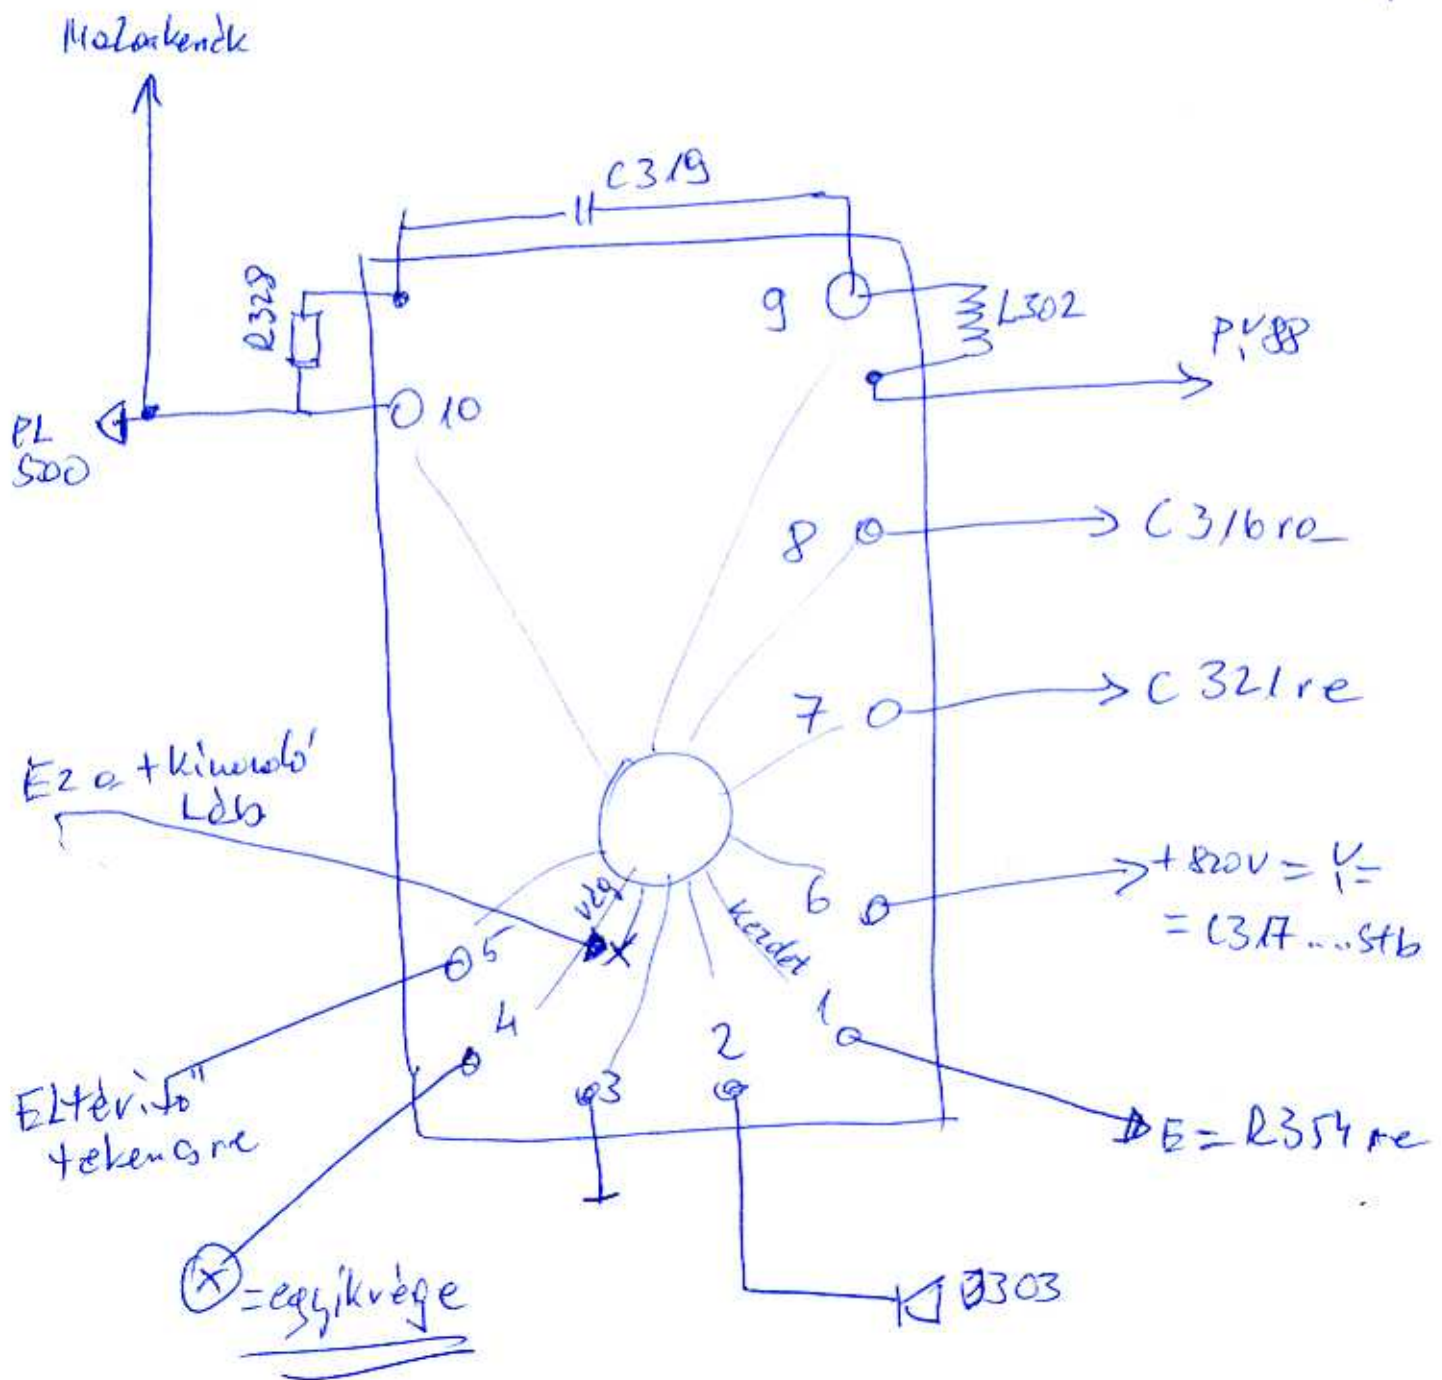 C319
R329
9
L302
PY88
10
PL
500
8
C316ra
7
C 321re
Ez a +
Láb
+820V =
= C317....stb
6
vég
kezdet
5
4
3
2
1
Eltérítő
tekercsre
E = R354re
X
X
= egyikvége
D303